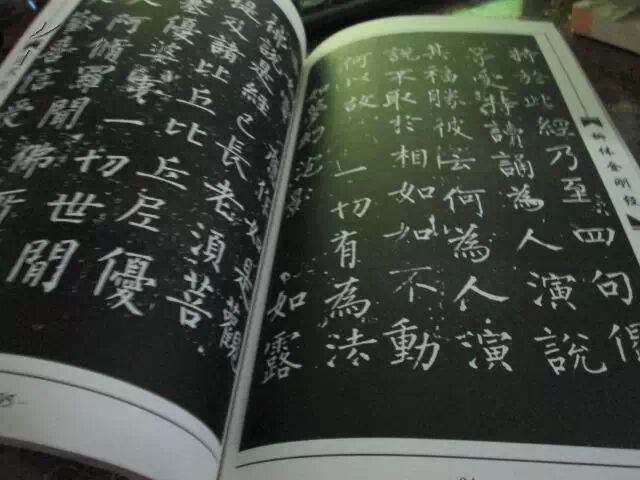 柳体金刚经
持於此經乃至四句偈
受持讀誦為人演說
其福勝彼云何為人演
說不取於相如如不動
何以故 一切有為法
如夢幻泡影 如露
如是觀
佛說是經已長老須菩
提及諸比丘比丘尼優
塞優婆夷一切世間
人阿脩羅聞佛所
歡喜信受